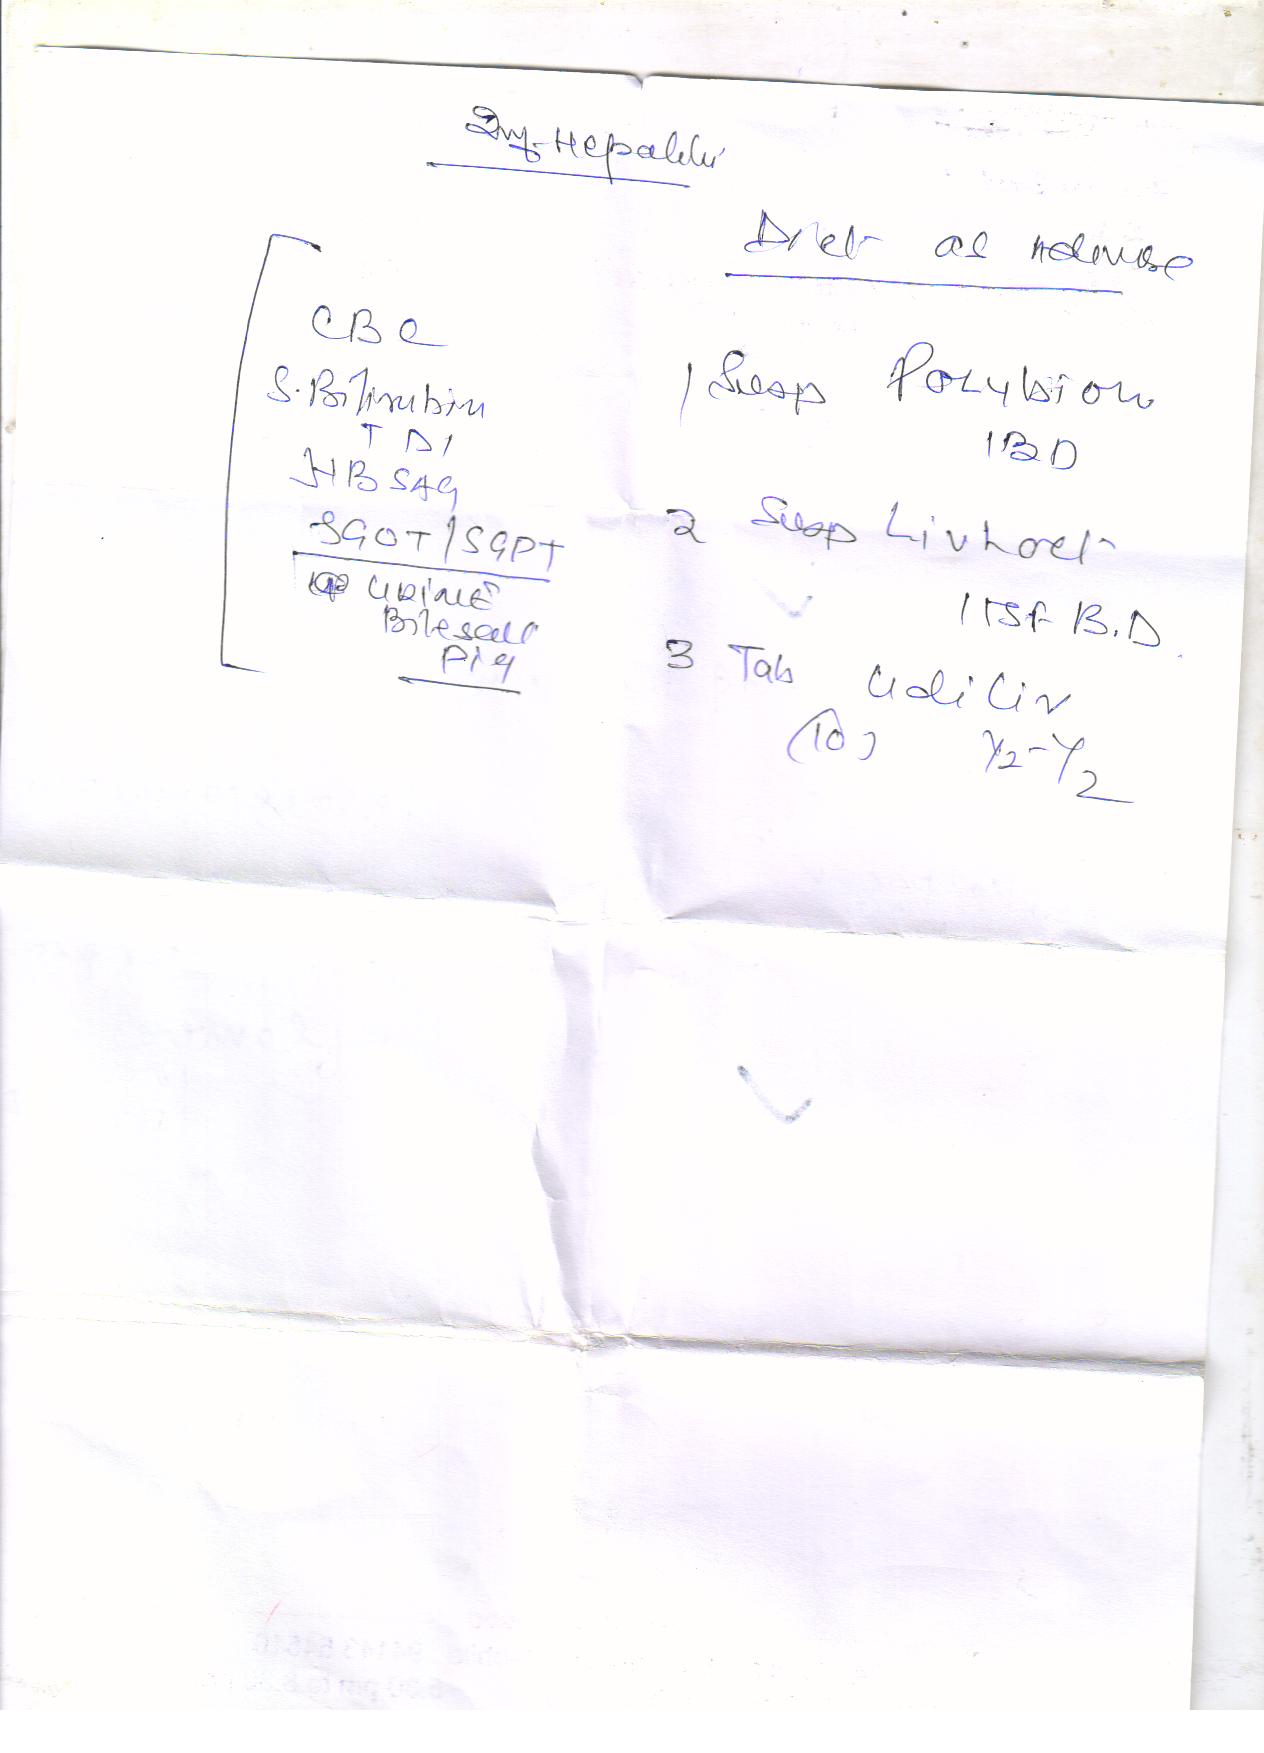 Inf. Hepatitis
Diet as Advise
CBC
S. Bilirubin
T D I
HBSAG
SGOT/SGPT
Urine
Bilesalt
Pig
1 Susp Polybion
1 BD
2 Susp Livhoet
1 TSF B.D.
3 Tab Udiliv
(10) 1/2-1/2